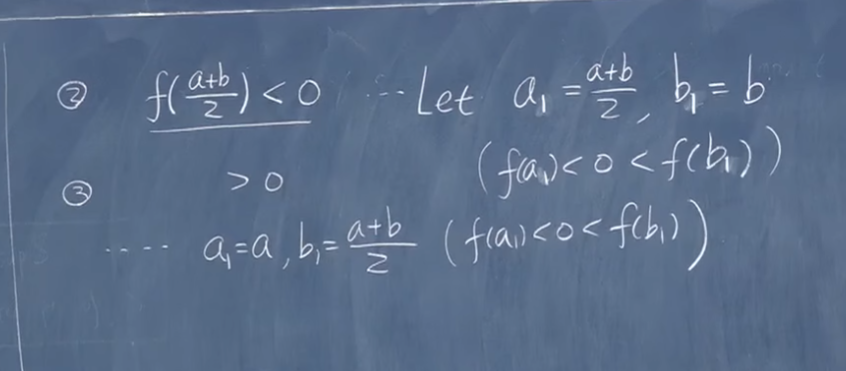 ② f(a+b/2) < 0 ... Let a₁ = a+b/2, b₁ = b
(f(a₁) < 0 < f(b₁))
③ > 0
.... a₁ = a, b₁ = a+b/2 (f(a₁) < 0 < f(b₁))